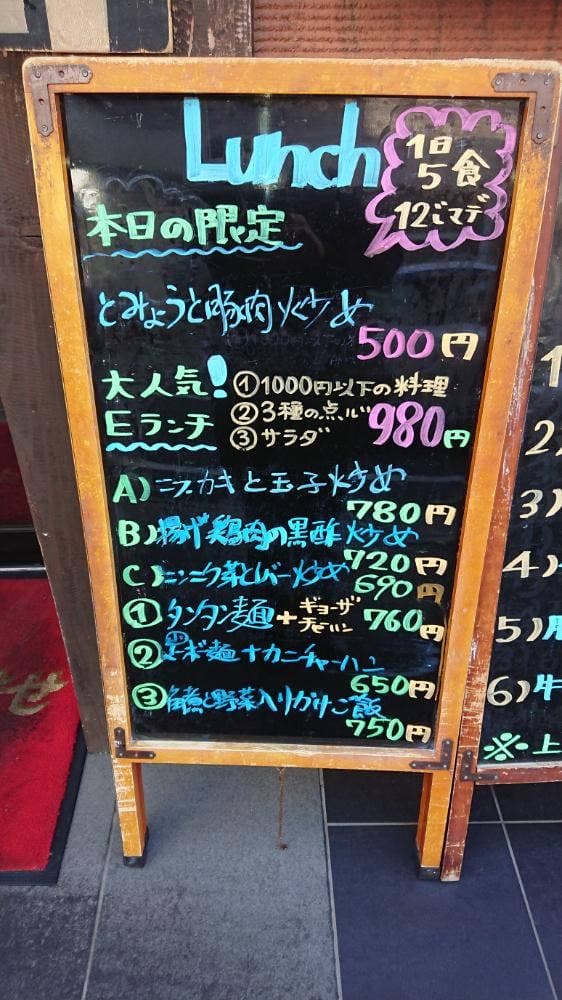 Lunch
1日
5食
12じマデ
本日の限定
とみょうと豚肉炒め
500円
大人気!
Eランチ
①1000円以下の料理
②3種の点心
③サラダ
980円
A)ニラカキと玉子炒め
780円
B)揚げ鶏肉の黒酢炒め
720円
C)ニンニク菜とレバー炒め
690円
①タンタン麺+ギョーザ
760円
②マーボ麺+カニチャーハン
650円
③角煮と野菜入りかけご飯
750円
1
2)
3)
4)
5)
6)牛
※上